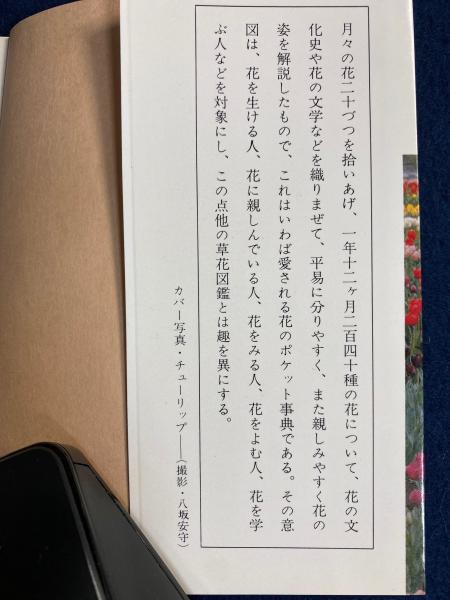 月々の花二十づつを拾いあげ、一年十二ヶ月二百四十種の花について、花の文
化史や花の文学などを織りまぜて、平易に分りやすく、また親しみやすく花の
姿を解説したもので、これはいわば愛される花のポケット事典である。その意
図は、花を生ける人、花に親しんでいる人、花をみる人、花をよむ人、花を学
ぶ人などを対象にし、この点他の草花図鑑とは趣を異にする。
カバー写真・チューリップ——(撮影・八坂安守)